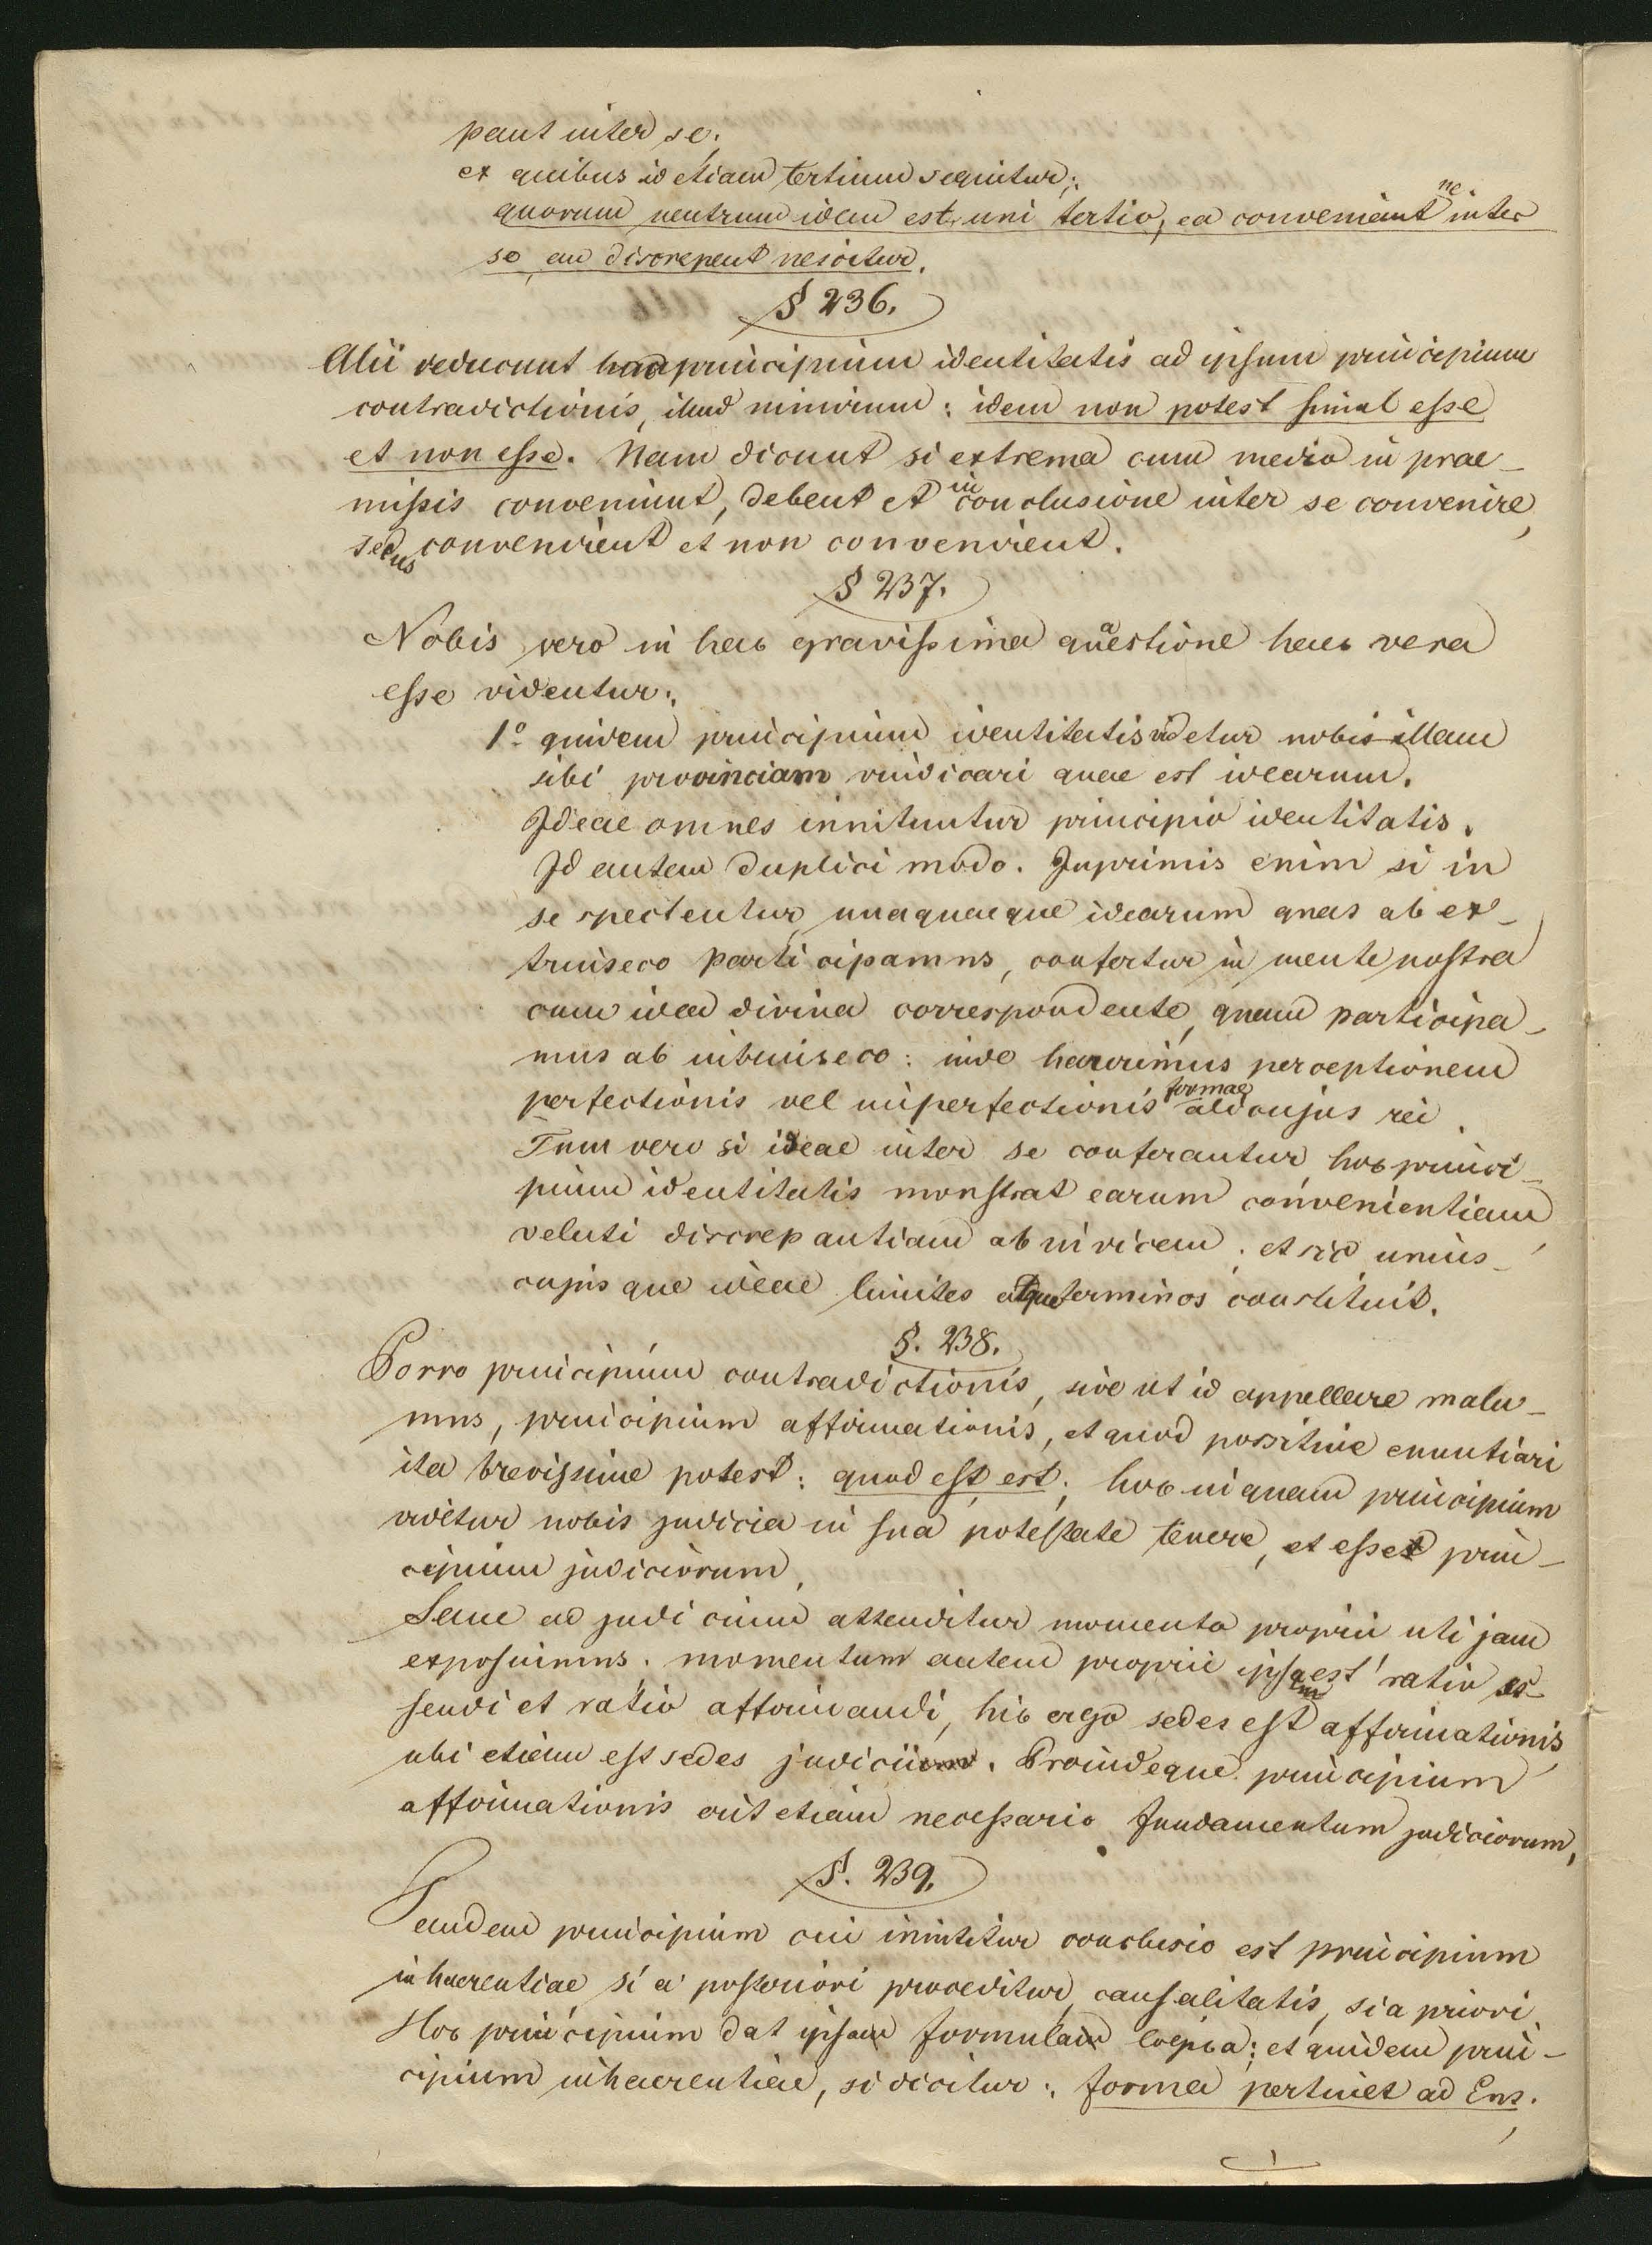 pant inter se;
ex quibus id etiam tertium sequitur:
quorum neutrum idem est uni tertio, ea conveniantne inter
se an discrepent nescitur.
§ 236.
Alii reducunt hoc principium identitatis ad ipsum principium
contradictionis, illud nimirum: idem non potest simul esse
et non esse. Nam dicunt si extrema cum medio in prae-
missis conveniunt, debent et in conclusione inter se convenire,
secus convenirent et non convenirent.
§ 237.
Nobis vero in hac gravissima quaestione haec vera
esse videntur:
1º quidem principium identitatis videtur nobis illam
sibi provinciam vindicari quae est idearum.
Ideae omnes innituntur principio identitatis.
Id autem duplici modo. Inprimis enim si in
se spectentur, unaquaeque idearum quas ab ex-
trinseco participamus, confertur in mente nostra
cum idea divina correspondente, quam participa-
mus ab intrinseco: inde haurimus perceptionem
perfectionis vel imperfectionis formae alicujus rei.
Tum vero si ideae inter se conferantur hoc princi-
pium identitatis monstrat earum convenientiam
veluti discrepantiam ab invicem; et sic unius-
cujusque ideae limites atque terminos constituit.
§. 238.
Porro principium contradictionis, sive ut id appellare malu-
mus, principium affirmationis, et quod positive enuntiari
ita brevissime potest: quod est, est; hoc inquam principium
videtur nobis judicia in sua potestate tenere, et esse prin-
cipium judiciorum.
Sane ad judicium attenditur momento proprii uti jam
exposuimus; momentum autem proprii ipsa est ratio es-
sendi et ratio affirmandi, hic ergo sedes est affirmationis
ubi etiam est sedes judicii. Proindeque principium
affirmationis erit etiam necessario fundamentum judiciorum.
§. 239.
Tandem principium cui innititur conclusio est principium
inhaerentiae, si a posteriori proceditur, causalitatis, si a priori.
Hoc principium dat ipsam formulam logica; et quidem prin-
cipium inhaerentiae, si dicitur: forma pertinet ad Ens.